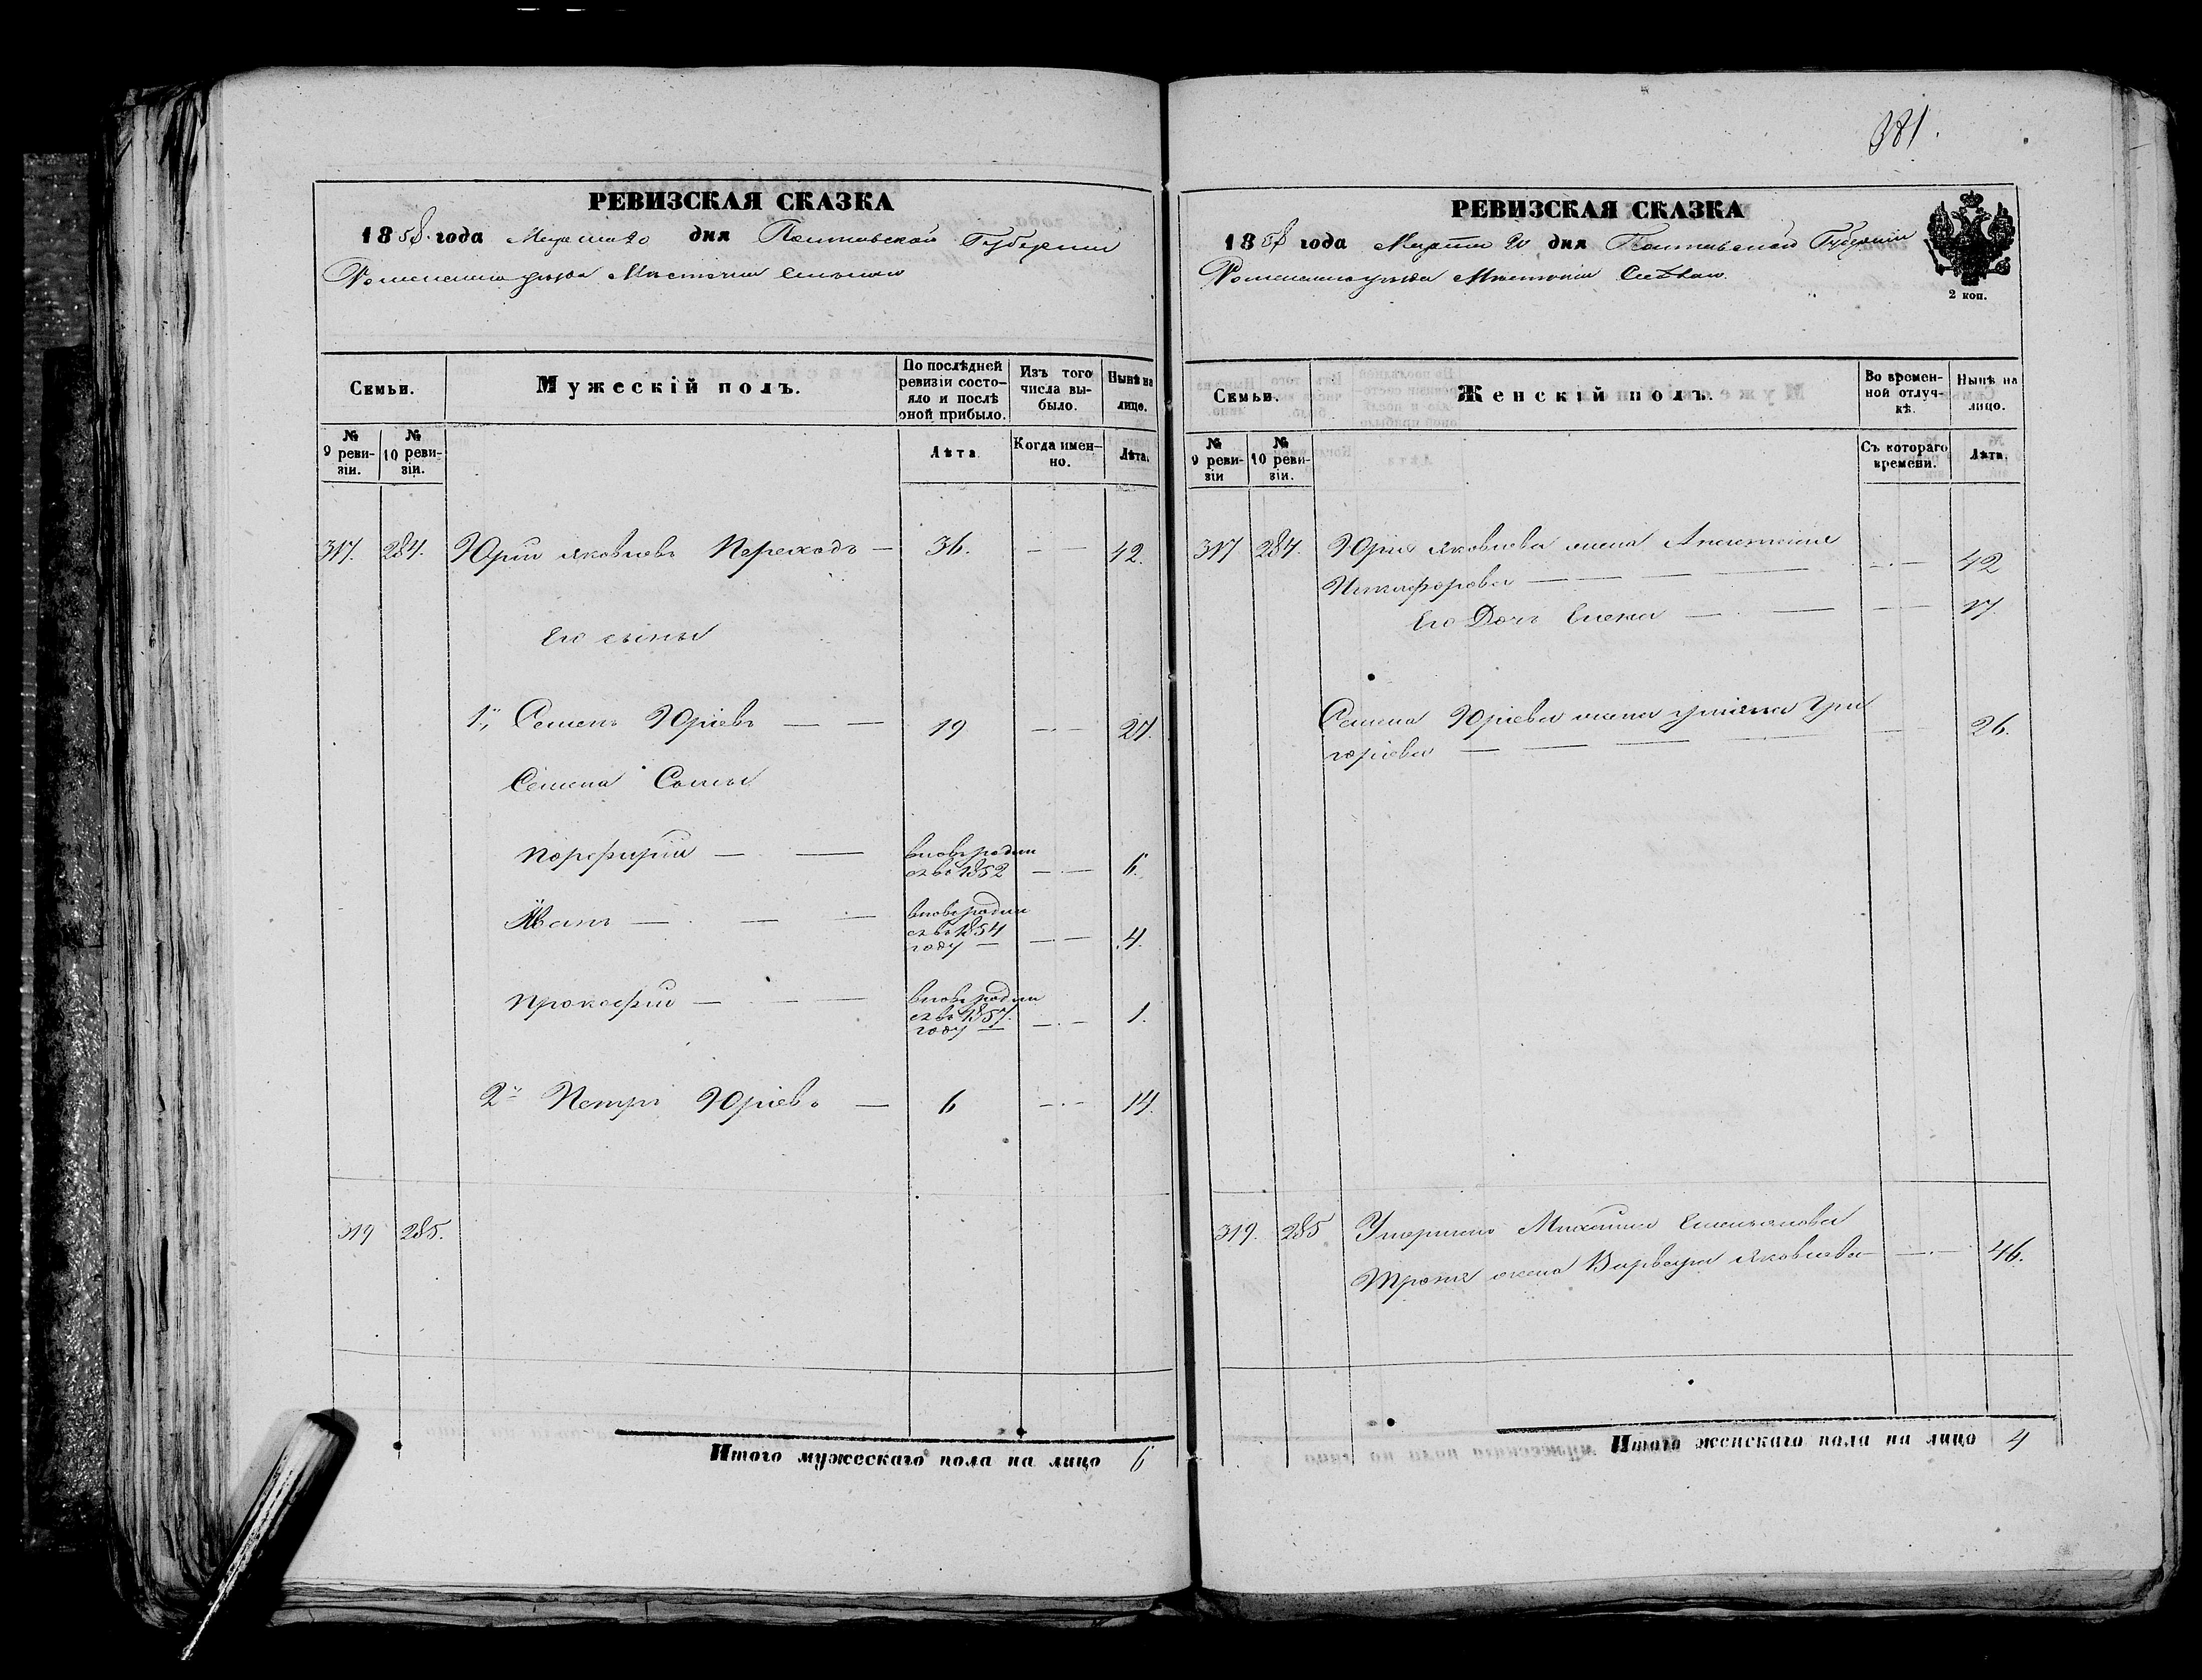 381.
РЕВИЗСКАЯ СКАЗКА
1858 года Марта 20 дня Полтавской Губернии
Роменскаго уезда Местечка Смелаго
Семьи.
Мужескій полъ.
По послѣдней ревизіи состояло и послѣ оной прибыло.
Изъ того числа выбыло.
Нынѣ на лицо.
№ 9 ревизіи.
№ 10 ревизіи.
Лѣта
Когда именно.
Лѣта.
317. 284. Юрий Яковлевъ Переходъ — 36. — 42.
Его сыны
1й Семенъ Юріевъ — — 19 — 27.
Семена Сыны
Порфирий — — вновь родил
ся въ 1852 — 6.
Иванъ — — — вновь родил
ся въ 1854
году — — 4.
Прокофий — — вновь родил
ся въ 1857.
году — — 1.
2й Петръ Юріевъ — 6 — 14.
319 285.
Итого мужескаго пола на лицо 6
РЕВИЗСКАЯ СКАЗКА
1858 года Марта 20 дня Полтавской Губернии
Роменскаго уезда Местечка Смелаго
2 коп.
Семьи.
Женскій полъ.
Во временной отлучкѣ.
Нынѣ на лицо.
№ 9 ревизіи
№ 10 ревизіи.
Съ котораго времени.
Лѣта.
317 284. Юрия Яковлева жена
Никифорова — — — — 42
Его Дочь Елена — — — 17.
Семена Юріева жена Гри
горіева — — — — 26.
319. 285 Умершаго Михаила Емельянова
жена Варвара Яковлева — — 46.
Итого женскаго пола на лицо 4